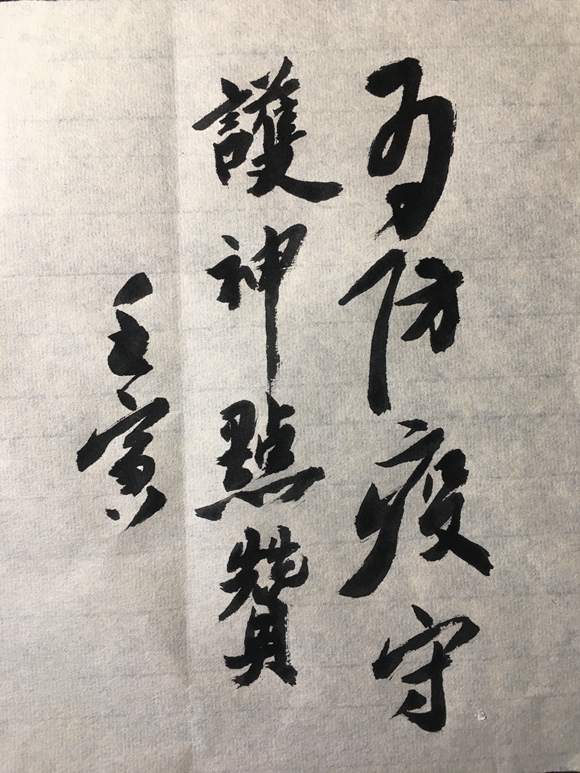 为防疫守
護神點贊
壬寅